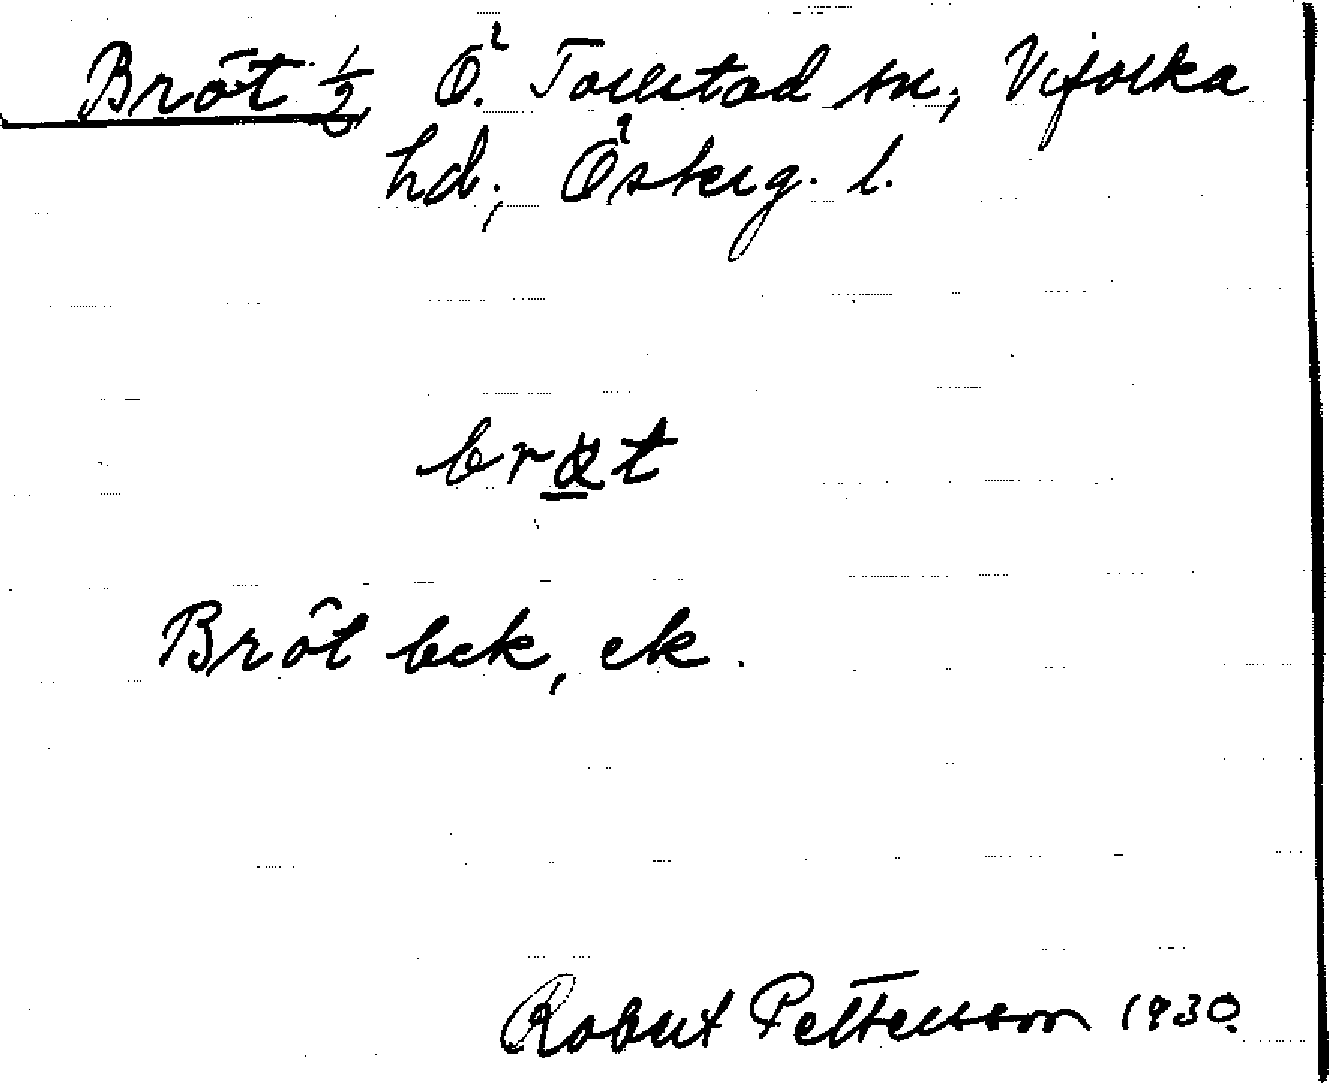 Bröt ½ Ö. Tollstad sn, Vifolka
hd, Österg. l.
brøt
Bröt bek, ek.
Robert Pettersson 1930.